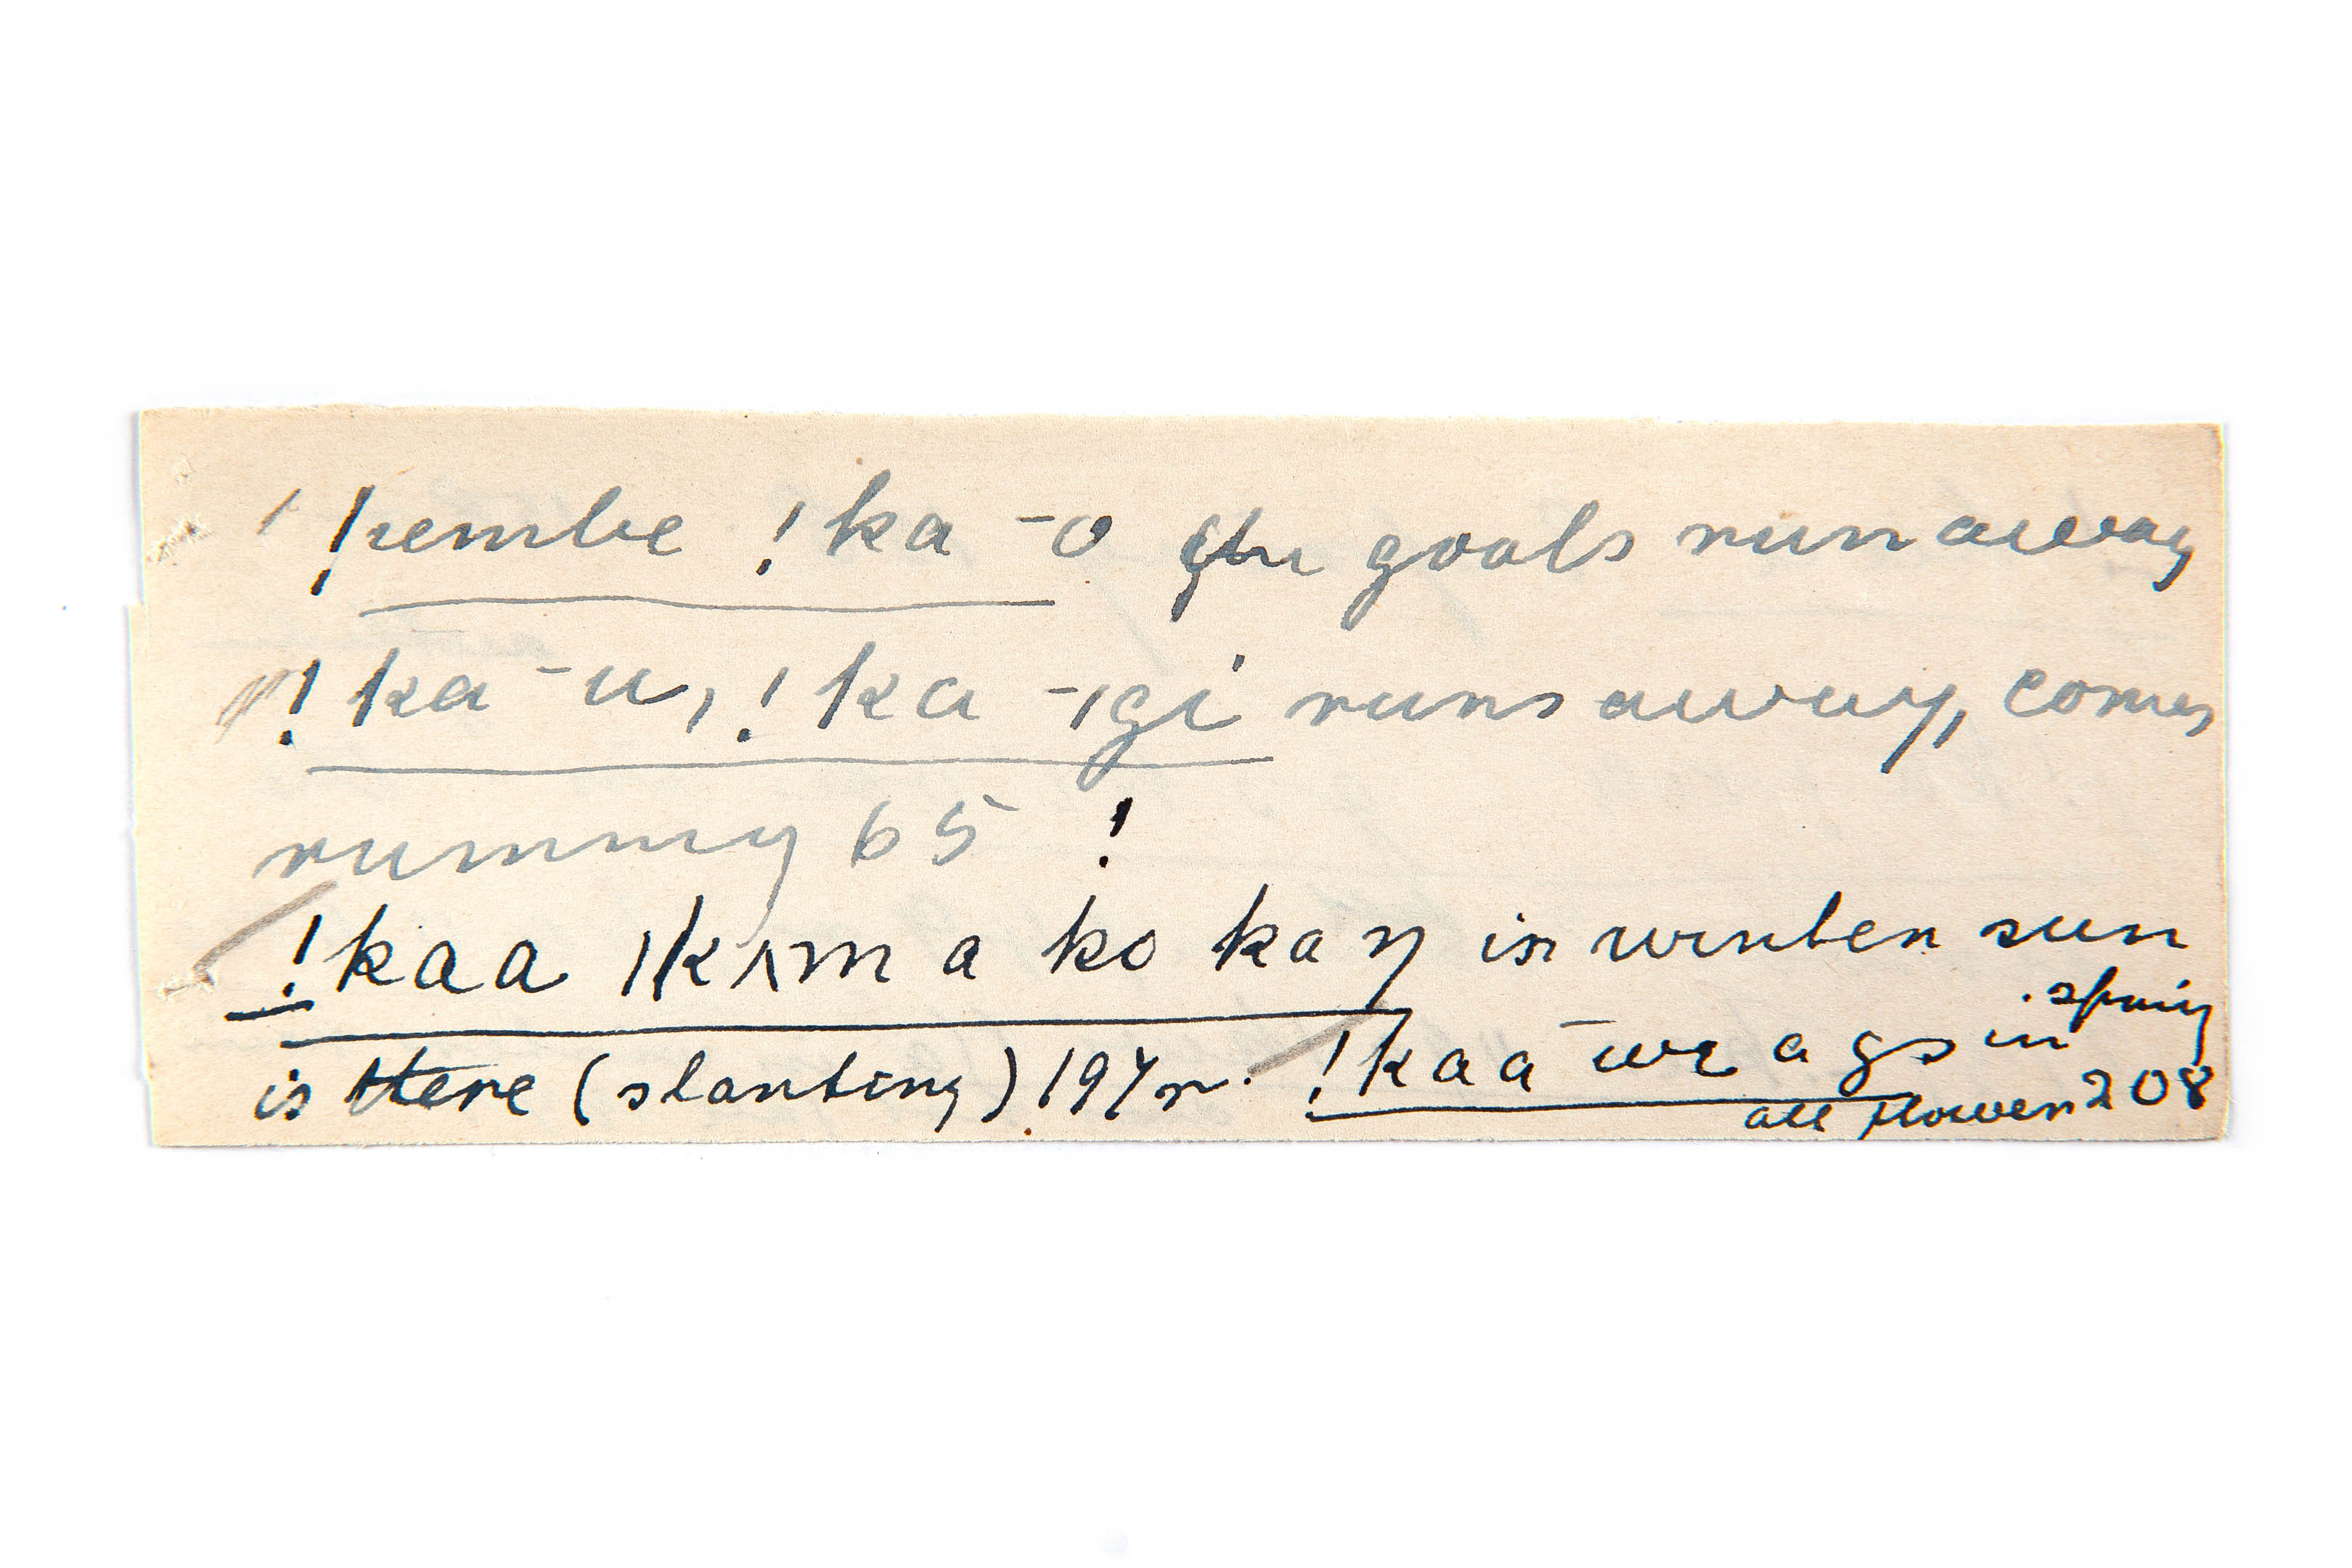 !kembe !ka -o the goats run away
! ka -u, ! ka -ıgi runs away, comes
running 65 !
!kaa |kʌm a ko ka ŋ in winter sun
is there (slanting) 197r. !kaa we a gs in spring
all flower 208